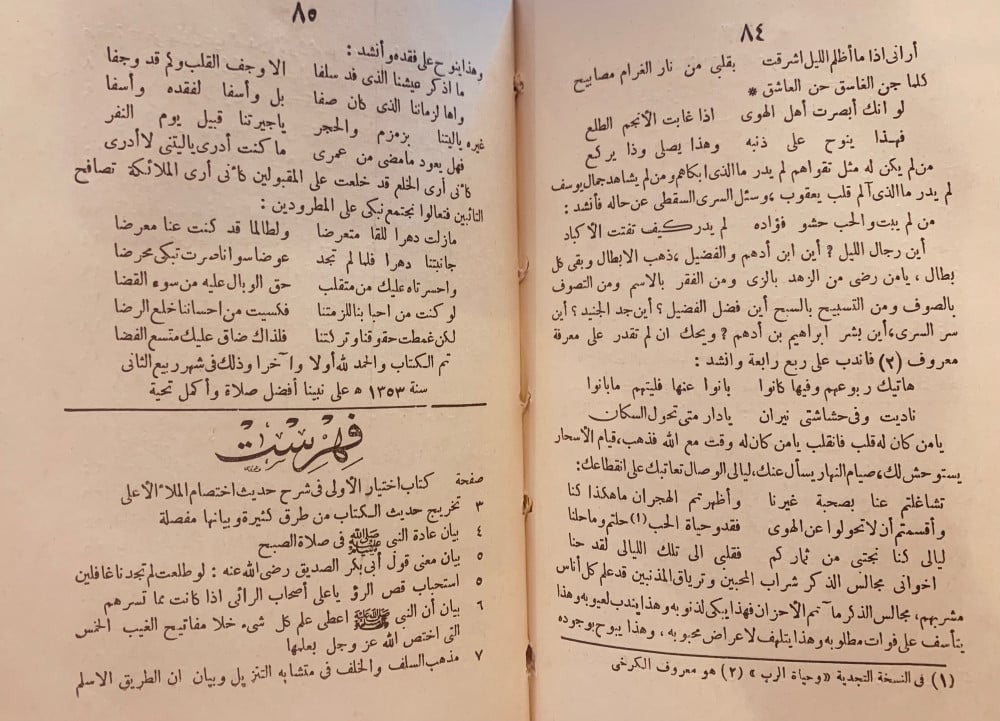 ٨٤
أرانى اذا ما أظلم الليل اشرقت بقلبى من نار الغرام مصابيح
كلما جن الغاسق حن العاشق *
لو انك أبصرت أهل الهوى اذا غابت الأنجم الطلع
فهذا ينوح على ذنبه وهذا يصلى وذا يركع
من لم يكن له مثل تقواهم لم يدر ما الذى ابكاهم ومن لم يشاهد جمال يوسف
لم يدر ما الذى آلم قلب يعقوب ، وسئل السرى السقطى عن حاله فأنشد :
من لم يبت والحب حشو فؤاده لم يدر كيف تفتت الأكباد
أين رجال الليل ? أين ابن أدهم والفضيل ، ذهب الابطال وبقى كل
بطال ، يامن رضى من الزهد بالزى ومن الفقر بالاسم ومن التصوف
بالصوف ومن التسبيح بالسبح أين فضل الفضيل ? أين جد الجنيد ? أين
سر السرى ، أين بشر ابراهيم بن أدهم ? ويحك ان لم تقدر على معرفة
معروف (٢) فاندب على ربع رابعة وانشد :
هاتيك ربوعهم وفيها كانوا بانوا عنها فليتهم مابانوا
ناديت وفى حشاشتى نيران يادار متى تحول السكان
يامن كان له قلب فانقلب يامن كان له وقت مع الله فذهب ، قيام الأسحار
يستوحش لك ، صيام النهار يسأل عنك ، ليالى الوصال تعاتبك على انقطاعك :
تشاغلتم عنا بصحبة غيرنا وأظهرتم الهجران ماهكذا كنا
وأقسمتم أن لا تحولوا عن الهوى فقد وحياة الحب (١) حلتم وما حلنا
ليالى كنا نجتنى من ثماركم فقلبى الى تلك الليالى لقد حنا
اخوانى مجالس الذكر شراب المحبين وترياق المذنبين قد علم كل أناس
مشربهم ، مجالس الذكر مآتم الأحزان فهذا يبكى لذنوبه وهذا يندب لعيوبه وهذا
يتأسف على فوات مطلوبه وهذا يتلهف لاعراض محبوبه ، وهذا يبوح بوجوده
(١) فى النسخة النجدية «وحياة الرب» (٢) هو معروف الكرخى
٨٥
وهذا ينوح على فقده وأنشد :
ما اذكر عيشنا الذى قد سلفا الا وجف القلب وكم قد وجفا
واها لزماننا الذى كان صفا بل وأسفا لفقده وأسفا
غيره ياليتنا بزمزم والحجر ياجيرتنا قبيل يوم النفر
فهل يعود مامضى من عمرى ما كنت أدرى ياليتنى لا أدرى
كأنى أرى الخلع قد خلعت على المقبولين كأنى أرى الملائكة تصافح
التائبين فتعالوا نجتمع نبكى على المطرودين :
مازلت دهرا للقا متعرضا ولطالما قد كنت عنا معرضا
جانبتنا دهرا فلما لم تجد عوضا سوانا صرت تبكى محرضا
واحسرتاه عليك من متقلب حق الوبال عليه من سوء القضا
لو كنت من احبابنا للزمتنا فكسيت من احساننا خلع الرضا
لكن غمطت حقوقنا وتركتنا فلذاك ضاق عليك متسع الفضا
تم الكتاب والحمد لله أولا وآخرا وذلك فى شهر ربيع الثانى
سنة ١٣٥٣ ھ على نبينا أفضل صلاة وأكمل تحية
فهرست
صفحة كتاب اختيار الأولى فى شرح حديث اختصام الملاء الأعلى
٣ تخريج حديث الكتاب من طرق كثيرة وبيانها مفصلة
٤ بيان عادة النبى ﷺ فى صلاة الصبح
٥ بيان معنى قول أبى بكر الصديق رضى الله عنه : لو طلعت لم تجدنا غافلين
٥ استحباب قص الرؤيا على أصحاب الرائى اذا كانت مما تسرهم
٦ بيان أن النبى ﷺ اعطى علم كل شىء خلا مفاتيح الغيب الخمس
التى اختص الله عز وجل بعلمها
٧ مذهب السلف والخلف فى متشابه التنزيل وبيان ان الطريق الاسلم